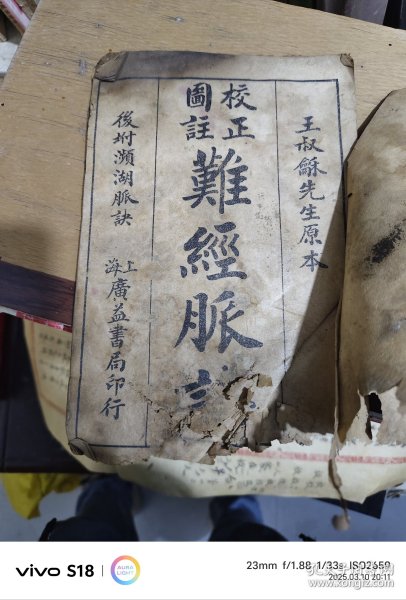 王叔龢先生原本
校正
圖註
難經脈
後坿瀕湖脈訣
上海
廣益書局印行
vivo S18
AURA LIGHT
23mm f/1.88 1/33s ISO2659
2025.03.10 20:11